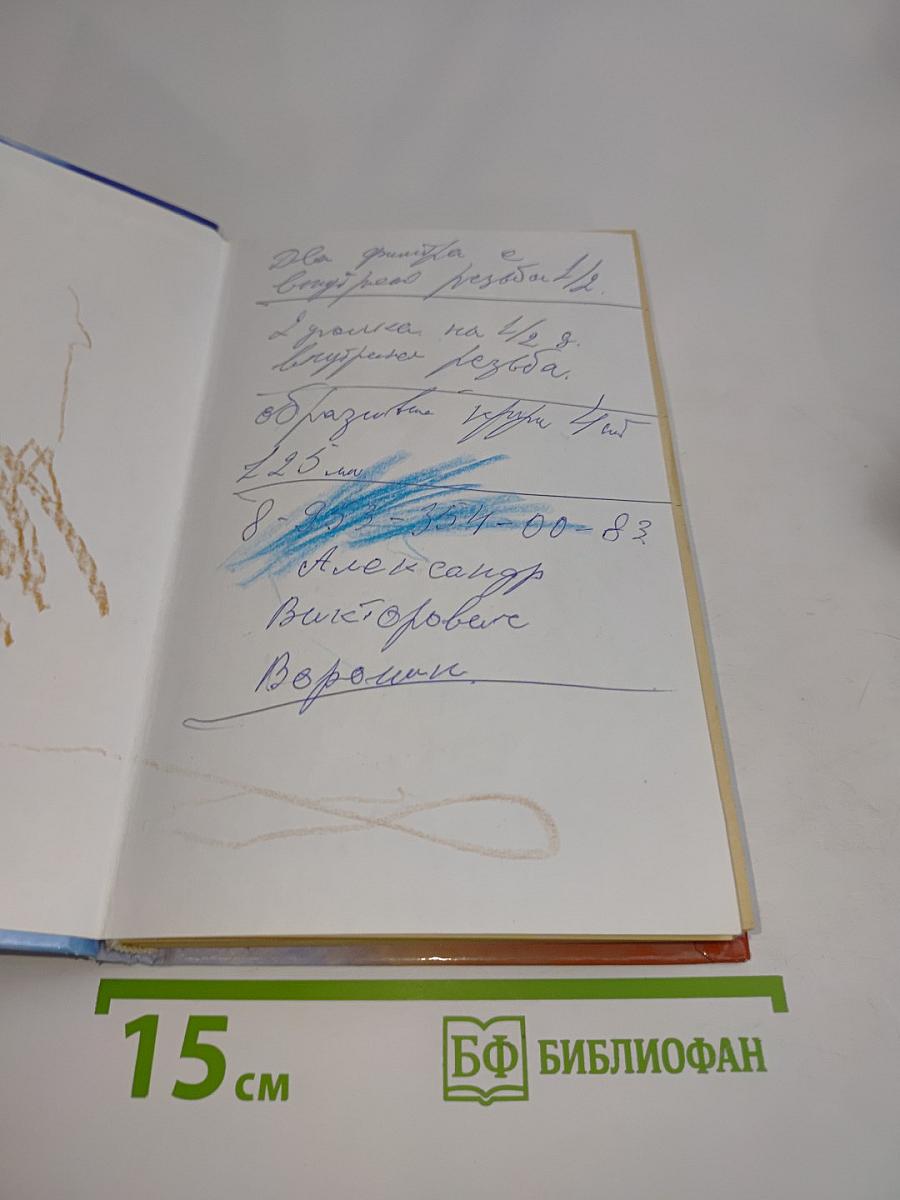 Два фильтра с
внутрен резьба 1/2.
2 уголка на 1/2 д.
внутрення резьба.
образивные круги 4 шт
125 мм
8-953-354-00-83
Александр
Викторович
Воронин.
15 см
БФ БИБЛИОФАН